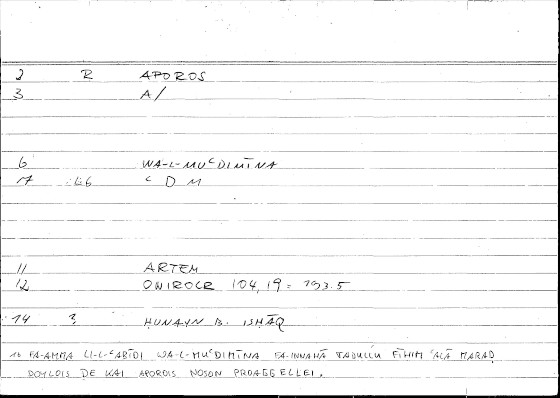 2 R APOROS
3 A/
6 WA-L-MUʿDIMĪNA
ʿ D M
11 ARTEM
12 ONIROCR 104,19 = 193.5
14 3 ḤUNAYN B. ISḤĀQ
16 FA-AMMA LI-L-ʿABĪDI WA-L-MUʿDIMĪNA FA-INNAHĀ TADULLU FĪHIM ʿALĀ MARAḌ
DOYLOIS DE KAI APOROIS NOSON PROAGGELLEI.